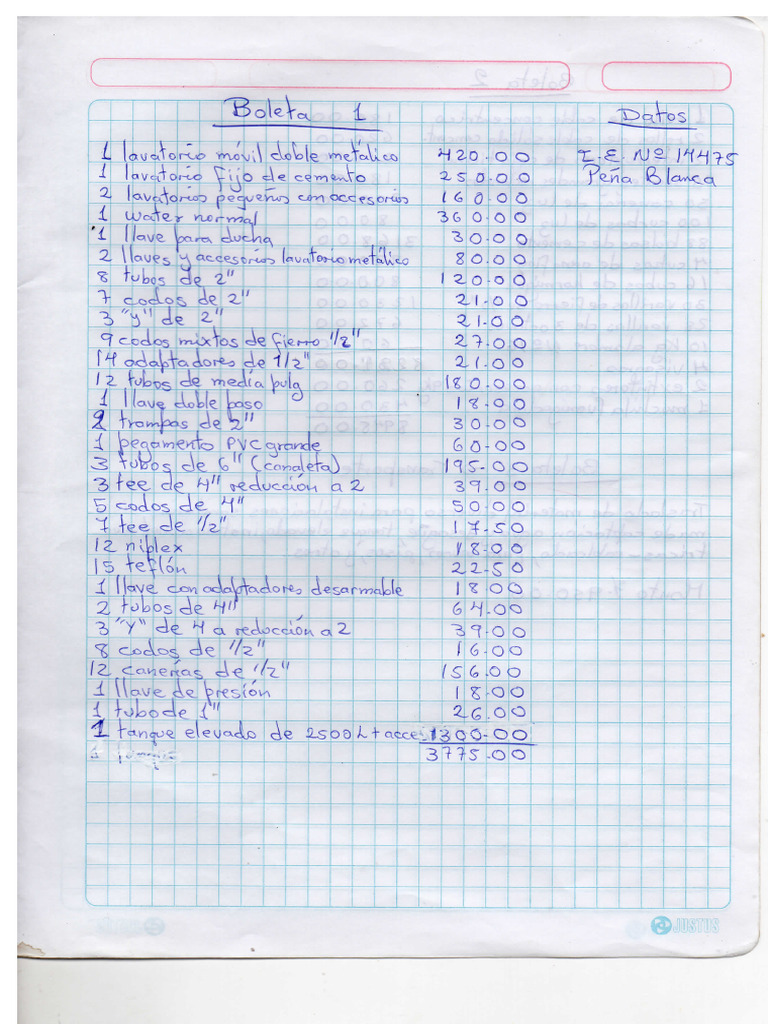 Boleta 1
Datos
1 lavatorio móvil doble metálico 420.00 I.E. Nº 14475
1 lavatorio fijo de cemento 250.00 Peña Blanca
2 lavatorios pequeños con accesorios 160.00
1 water normal 360.00
1 llave para ducha 30.00
2 llaves y accesorios lavatorio metálico 80.00
8 tubos de 2" 120.00
7 codos de 2" 21.00
3 "y" de 2" 21.00
9 codos mixtos de fierro 1/2" 27.00
14 adaptadores de 1/2" 21.00
12 tubos de media pulg 180.00
1 llave doble paso 18.00
2 trampas de 2" 30.00
1 pegamento PVC grande 60.00
3 tubos de 6" (canaleta) 195.00
3 tee de 4" reducción a 2 39.00
5 codos de 4" 50.00
7 tee de 1/2" 17.50
12 niplex 18.00
15 teflón 22.50
1 llave con adaptadores desarmable 18.00
2 tubos de 4" 64.00
3 "Y" de 4 a reducción a 2 39.00
8 codos de 1/2" 16.00
12 canerías de 1/2" 156.00
1 llave de presión 18.00
1 tubo de 1" 26.00
1 tanque elevado de 2500 L + acce. 1300.00
1 3775.00
JUSTUS